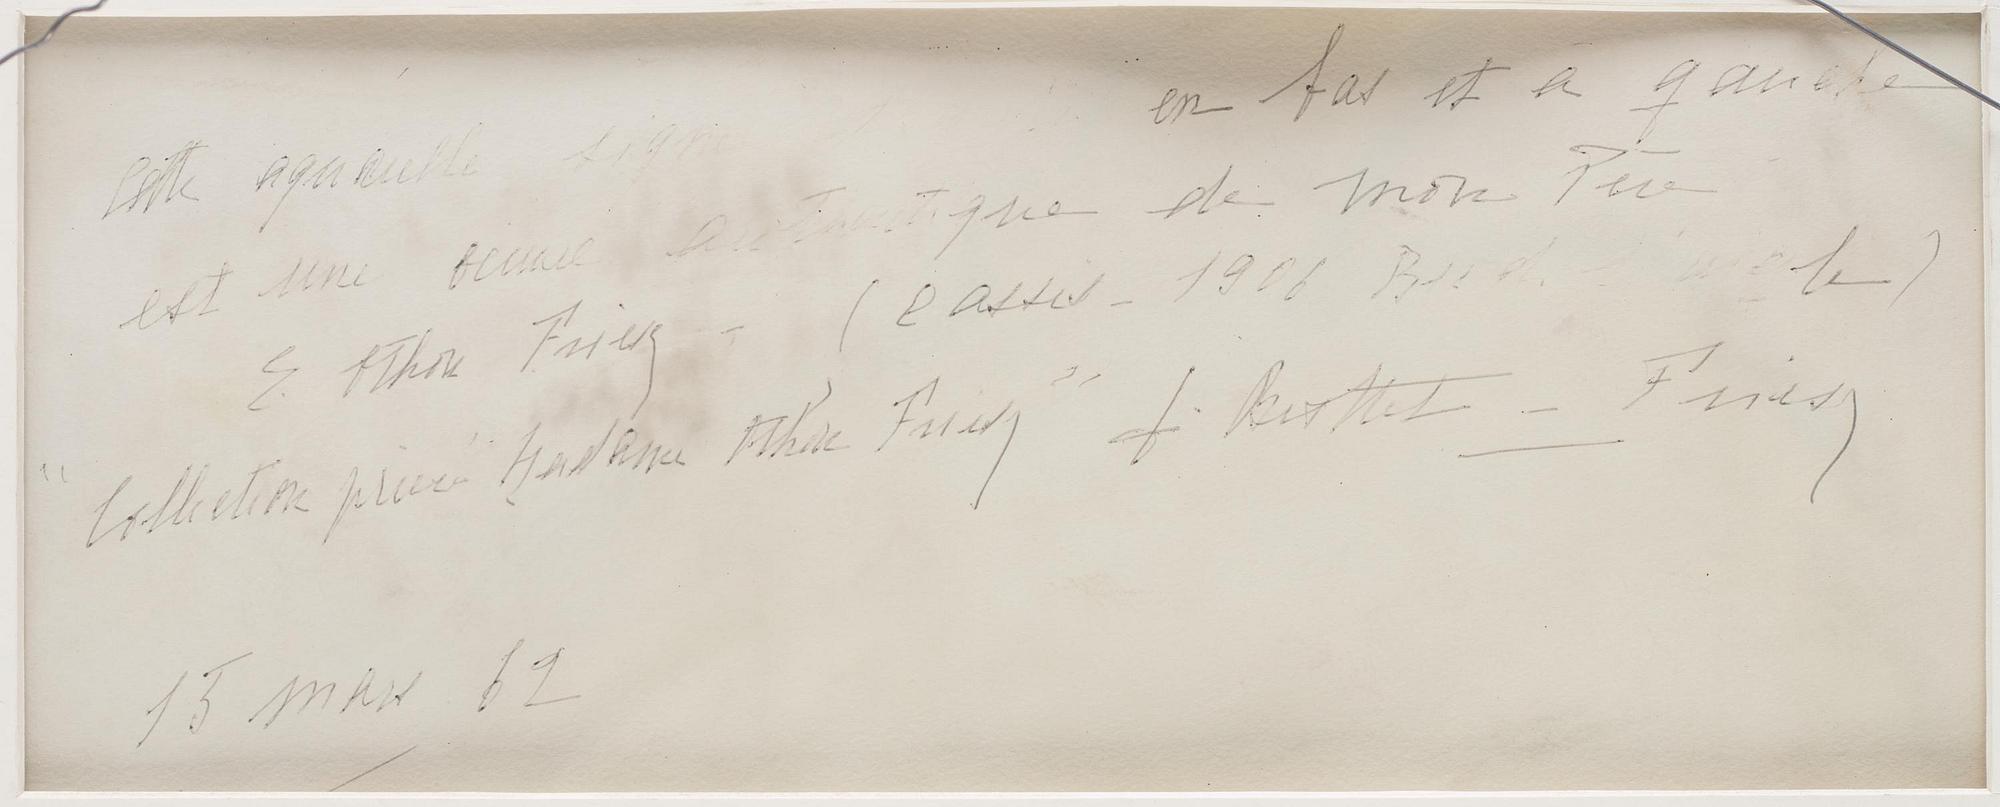 Cette aquarelle signée en bas et à gauche
est une oeuvre authentique de mon Père
E Othon Friesz - (Cassis - 1906
"Collection privée Madame Othon Friesz" - Friesz
15 mars 62